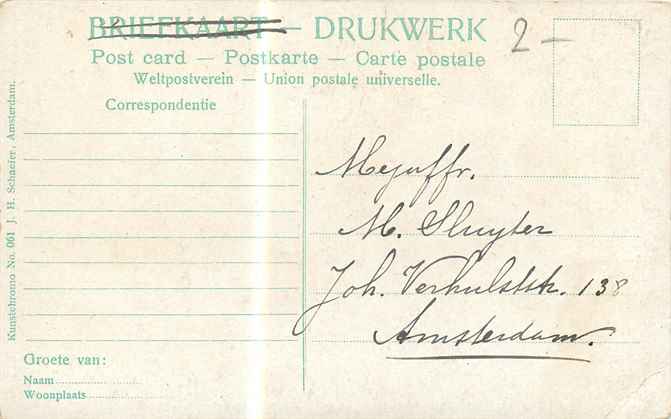 BRIEFKAART — DRUKWERK
2 —
Post card — Postkarte — Carte postale
Weltpostverein — Union postale universelle.
Correspondentie
Mejuffr.
M. Sluyter
Joh. Verhulststr. 138
Amsterdam.
Groete van:
Naam
Woonplaats
Kunstchromo No. 061 J. H. Schaefer, Amsterdam.